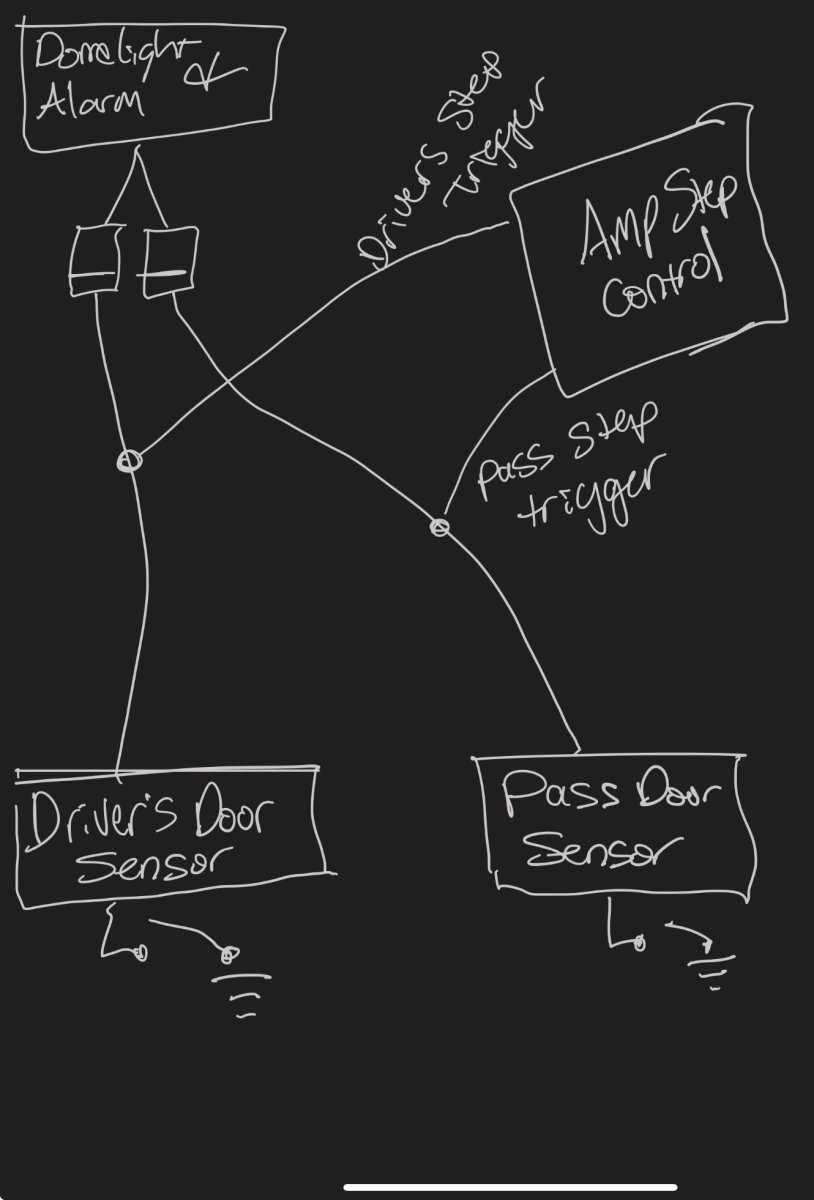 Domelight &
Alarm
Drivers Step
trigger
Amp Step
Control
Pass Step
trigger
Driver's Door
Sensor
Pass Door
Sensor